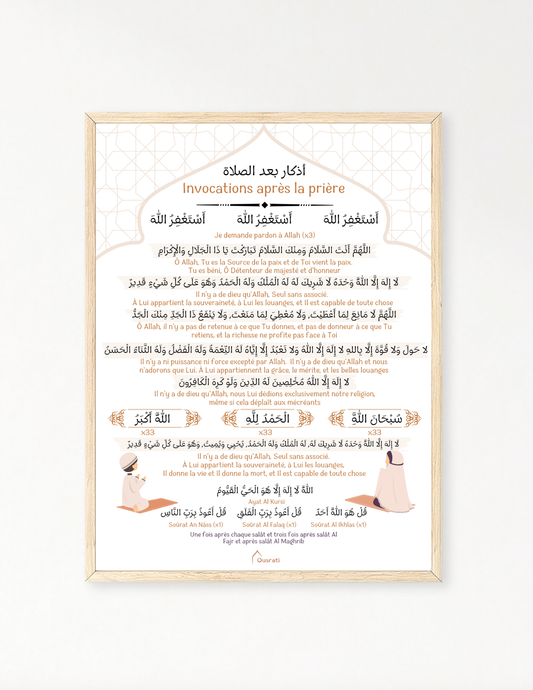 أذكار بعد الصلاة
Invocations après la prière
أَسْتَغْفِرُ اللهَ أَسْتَغْفِرُ اللهَ أَسْتَغْفِرُ اللهَ
Je demande pardon à Allah (x3)
اللَّهُمَّ أَنْتَ السَّلَامُ وَمِنْكَ السَّلَامُ تَبَارَكْتَ يَا ذَا الْجَلَالِ وَالْإِكْرَامِ
Ô Allah, Tu es la Source de la paix et de Toi vient la paix.
Tu es béni, Ô Détenteur de majesté et d'honneur
لَا إِلَهَ إِلَّا اللهُ وَحْدَهُ لَا شَرِيكَ لَهُ لَهُ الْمُلْكُ وَلَهُ الْحَمْدُ وَهُوَ عَلَى كُلِّ شَيْءٍ قَدِيرٌ
Il n'y a de dieu qu'Allah, Seul sans associé.
À Lui appartient la souveraineté, à Lui les louanges, et Il est capable de toute chose
اللَّهُمَّ لَا مَانِعَ لِمَا أَعْطَيْتَ, وَلَا مُعْطِيَ لِمَا مَنَعْتَ, وَلَا يَنْفَعُ ذَا الْجَدِّ مِنْكَ الْجَدُّ
Ô Allah, il n'y a pas de retenue à ce que Tu donnes, et pas de donneur à ce que Tu
retiens, et la richesse ne profite pas face à Toi
لَا حَولَ وَلَا قُوَّةَ إِلَّا بِاللهِ لَا إِلَهَ إِلَّا اللهُ وَلَا نَعْبُدُ إِلَّا إِيَّاهُ لَهُ النِّعْمَةُ وَلَهُ الْفَضْلُ وَلَهُ الثَّنَاءُ الْحَسَنُ
Il n'y a ni puissance ni force excepté par Allah. Il n'y a de dieu qu'Allah et nous
n'adorons que Lui. À Lui appartiennent la grâce, le mérite, et les belles louanges
لَا إِلَهَ إِلَّا اللهُ مُخْلِصِينَ لَهُ الدِّينَ وَلَوْ كَرِهَ الْكَافِرُونَ
Il n'y a de dieu qu'Allah, nous Lui dédions exclusivement notre religion,
même si cela déplaît aux mécréants
سُبْحَانَ اللَّهِ الْحَمْدُ لِلَّهِ اللَّهُ أَكْبَرُ
x33 x33 x33
لَا إِلَهَ إِلَّا اللهُ وَحْدَهُ لَا شَرِيكَ لَهُ, لَهُ الْمُلْكُ وَلَهُ الْحَمْدُ, يُحْيِي وَيُمِيتُ, وَهُوَ عَلَى كُلِّ شَيْءٍ قَدِيرٌ
Il n'y a de dieu qu'Allah, Seul sans associé.
À Lui appartient la souveraineté, à Lui les louanges,
Il donne la vie et Il donne la mort, et Il est capable de toute chose
اللهُ لَا إِلَهَ إِلَّا هُوَ الْحَيُّ الْقَيُّومُ
Ayat Al Kursi
قُلْ هُوَ اللهُ أَحَدٌ قُلْ أَعُوذُ بِرَبِّ الْفَلَقِ قُلْ أَعُوذُ بِرَبِّ النَّاسِ
Soûrat An Nâss (x1) Soûrat Al Falaq (x1) Soûrat Al Ikhlas (x1)
Une fois après chaque salât et trois fois après salât Al
Fajr et après salât Al Maghrib
Qusrati